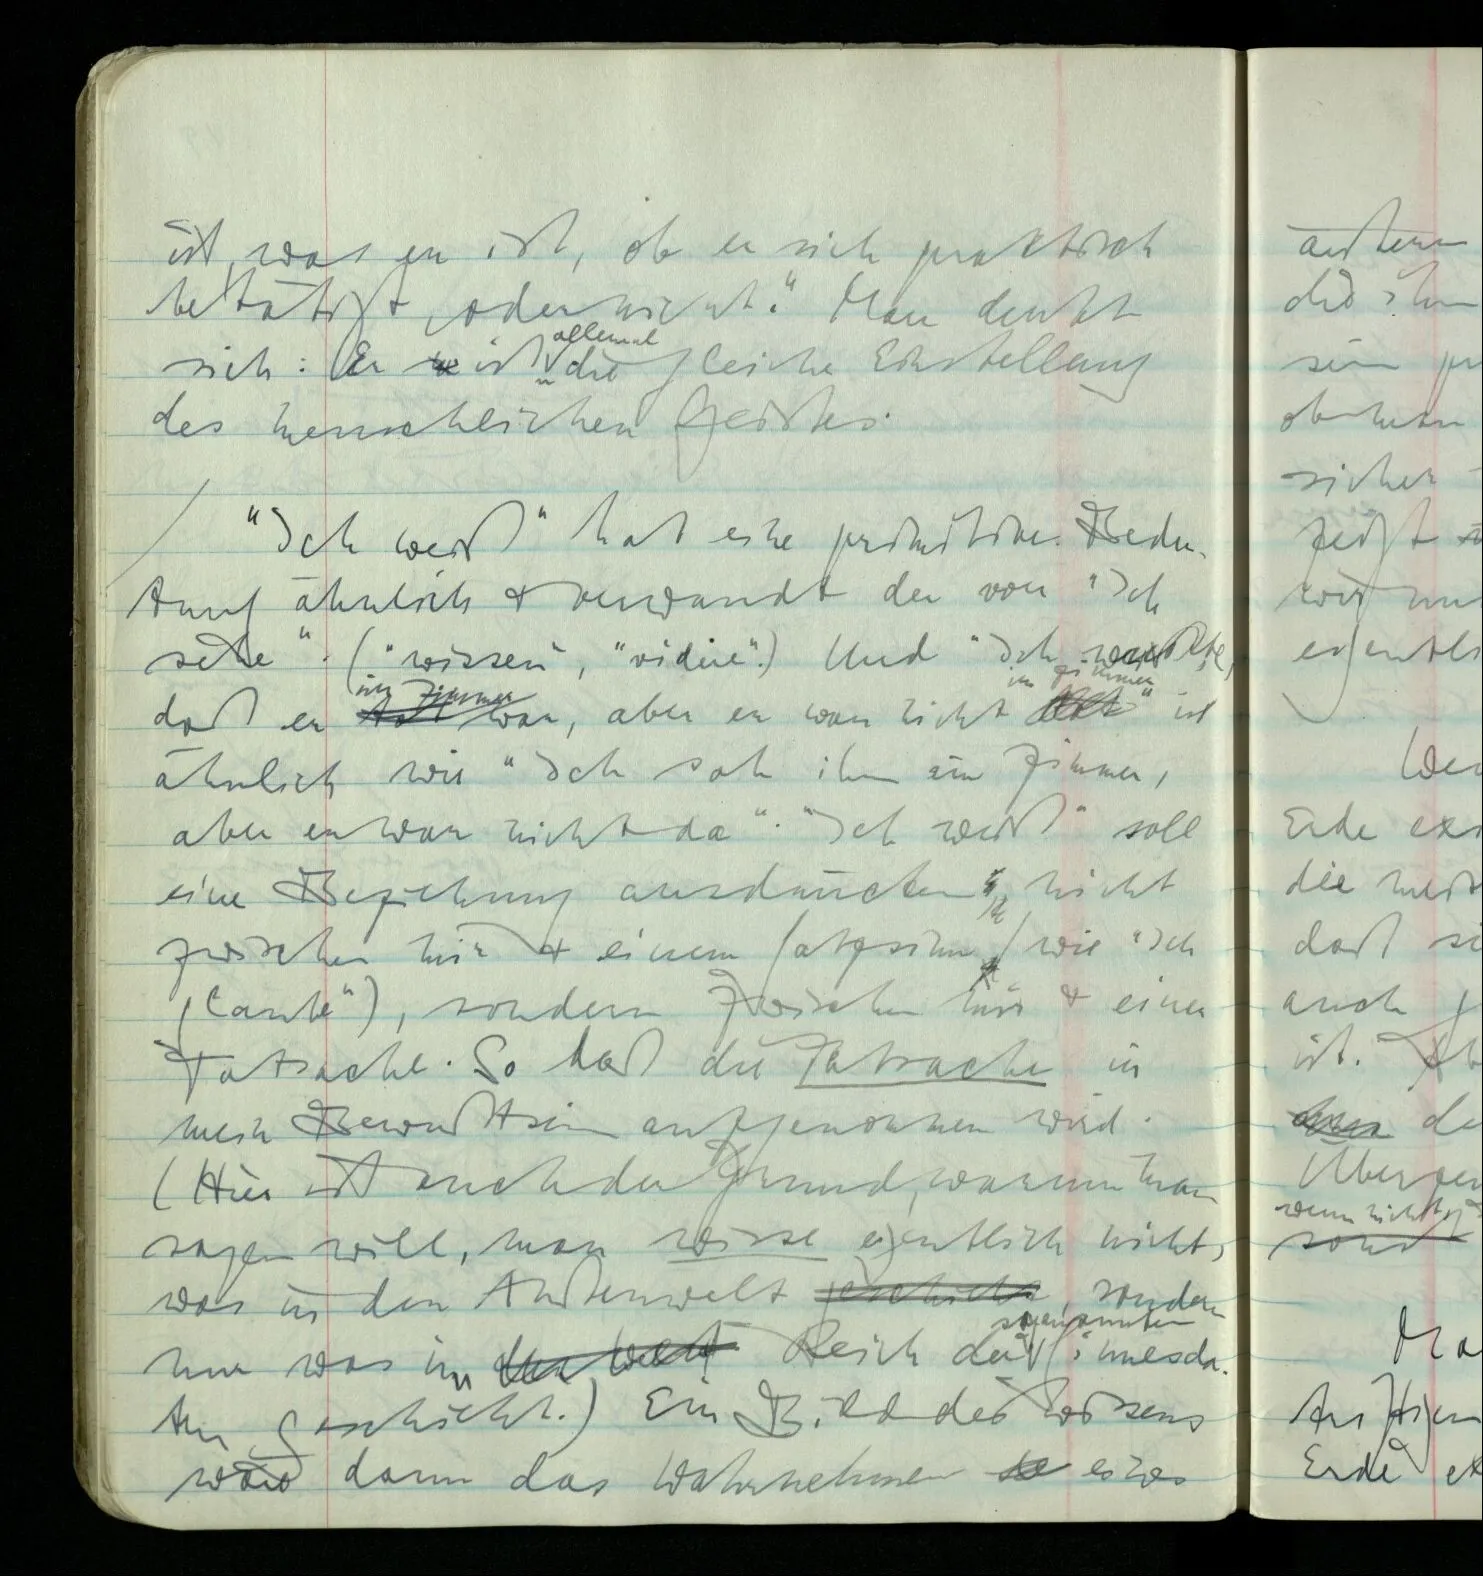 ist, was er ist, ob er sich praktisch
betätigt, oder nicht." Man denkt
sich: Er ist allemal die gleiche Einstellung
des menschlichen Geistes.
"Ich weiß" hat eine primitive Bedeu-
tung ähnlich & verwandt der von "Ich
sehe". ("wissen", "videre".) Und "Ich wußte,
daß er im Zimmer war, aber er war nicht im Zimmer" ist
ähnlich wie "Ich sah ihn im Zimmer,
aber er war nicht da". "Ich weiß" soll
eine Beziehung ausdrücken, nicht
zwischen mir & einem Satzsinn (wie "Ich
glaube"), sondern zwischen mir & einer
Tatsache. So daß die Tatsache in
mein Bewußtsein aufgenommen wird.
(Hier ist auch der Grund, warum man
sagen will, man wisse eigentlich nicht,
was in der Außenwelt geschieht, sondern
nur was im Reich der sogenannten Sinnesda-
ten geschieht.) Ein Bild des Wissens
wäre dann das Wahrnehmen eines
äußern
die ihn
sein
sicher
zeigt
wir
eigentli
Wen
Erde exi
die meis
daß si
auch g
ist. Ab
de
Überzeu
wenn nicht
sond
Ma
Erde ex